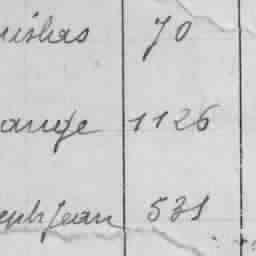 uislas 70
ange 1126
eph Jean 531